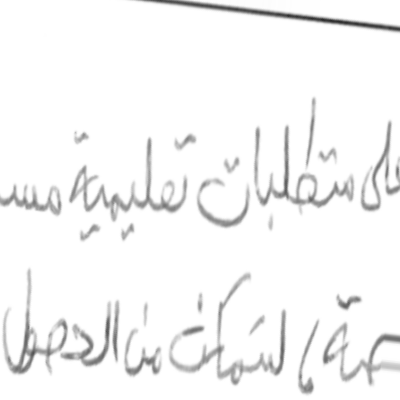 على متطلبات تعليمية مسبـ
صة، لتتمكن من الحصول